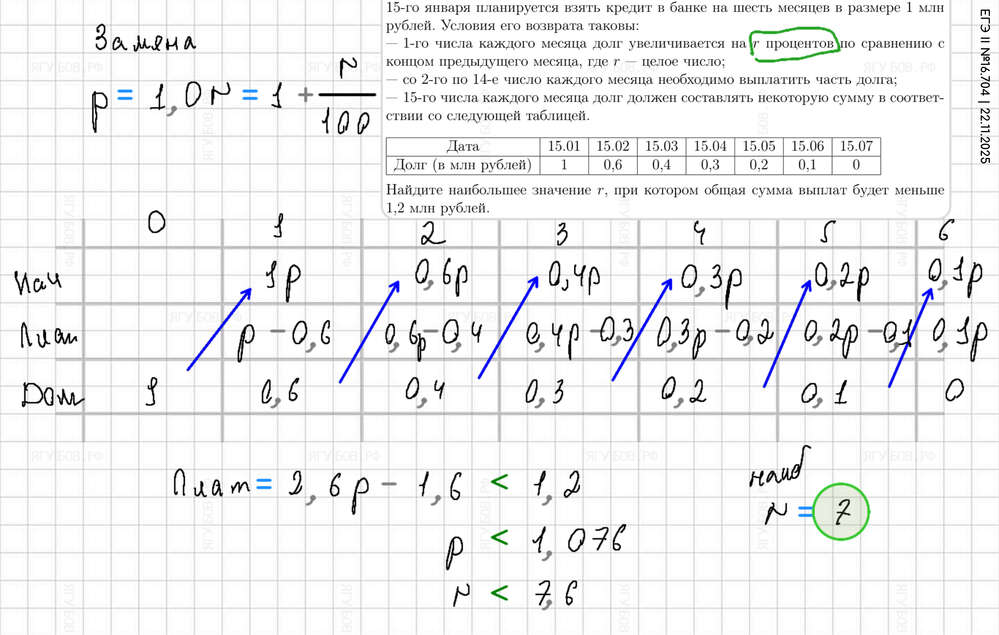 15-го января планируется взять кредит в банке на шесть месяцев в размере 1 млн
рублей. Условия его возврата таковы:
— 1-го числа каждого месяца долг увеличивается на r процентов по сравнению с
концом предыдущего месяца, где r — целое число;
— со 2-го по 14-е число каждого месяца необходимо выплатить часть долга;
— 15-го числа каждого месяца долг должен составлять некоторую сумму в соответ-
ствии со следующей таблицей.
Дата 15.01 15.02 15.03 15.04 15.05 15.06 15.07
Долг (в млн рублей) 1 0,6 0,4 0,3 0,2 0,1 0
Найдите наибольшее значение r, при котором общая сумма выплат будет меньше
1,2 млн рублей.
ЕГЭ II №16.704 | 22.11.2025
Замена
p = 1,0r = 1 + r/100
0 1 2 3 4 5 6
Нач 1p 0,6p 0,4p 0,3p 0,2p 0,1p
Плат p − 0,6 0,6p − 0,4 0,4p − 0,3 0,3p − 0,2 0,2p − 0,1 0,1p
Долг 1 0,6 0,4 0,3 0,2 0,1 0
Плат = 2,6p − 1,6 < 1,2
p < 1,076
r < 7,6
наиб
r = 7
ЯГУБОВ.РФ